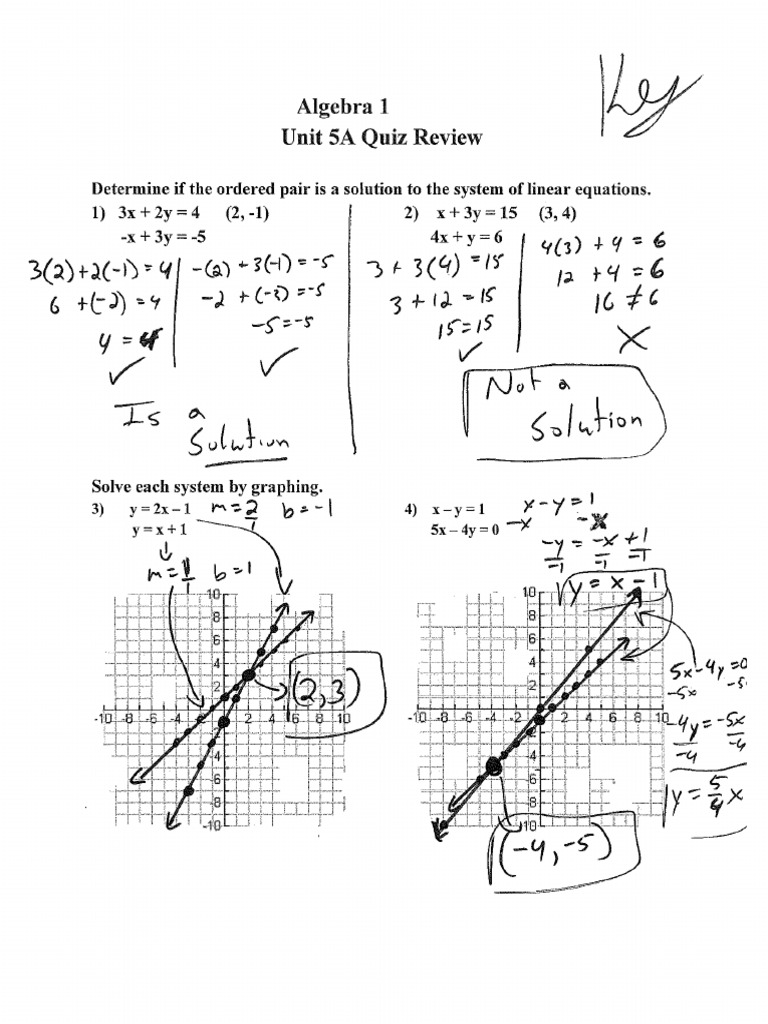 Key
Algebra 1
Unit 5A Quiz Review
Determine if the ordered pair is a solution to the system of linear equations.
1) 3x + 2y = 4 (2, -1)
-x + 3y = -5
3(2)+2(-1)=4
6 +(-2)=4
4 = 4
-(2) + 3(-1) = -5
-2 + (-3) = -5
-5 = -5
Is a
Solution
2) x + 3y = 15 (3, 4)
4x + y = 6
3 + 3(4) = 15
3 + 12 = 15
15 = 15
4(3) + 4 = 6
12 + 4 = 6
16 ≠ 6
Not a
Solution
Solve each system by graphing.
3) y = 2x – 1 m = 2/1 b = -1
y = x + 1
m = 1/1 b = 1
10
8
6
4
2
-10 -8 -6 -4 2 4 6 8 10
-2
-4
-6
-8
-10
(2,3)
4) x – y = 1
5x – 4y = 0
x - y = 1
-x -x
-y/-1 = -x/-1 +1/-1
y = x - 1
5x - 4y = 0
-5x -5
-4y/-4 = -5x/-4
y = 5/4 x
10
8
6
4
2
-10 -8 -6 -4 2 4 6 8 10
-2
-4
-6
-8
-10
(-4, -5)